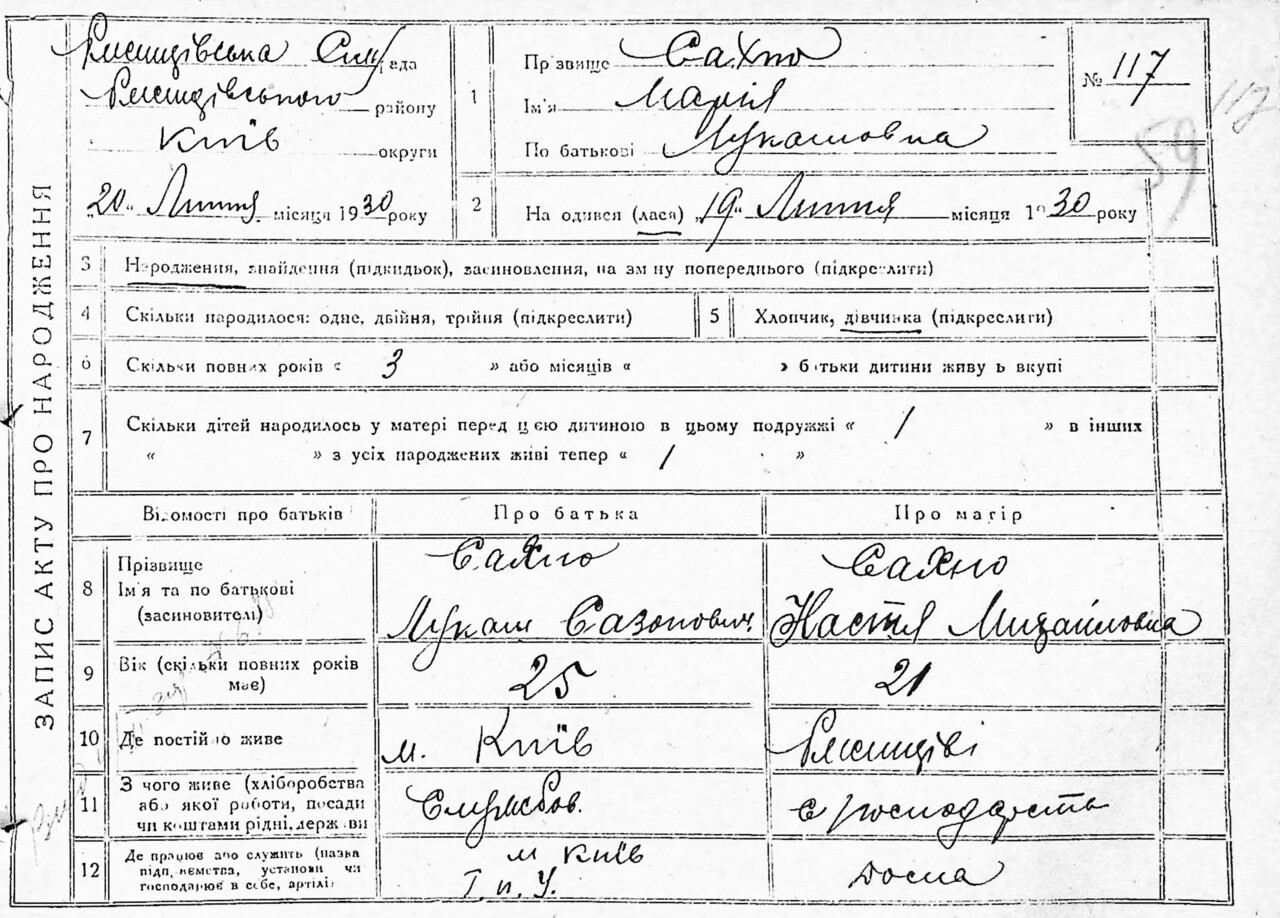 ЗАПИС АКТУ ПРО НАРОДЖЕННЯ
Ржищівська Сіль рада
Ржищівського району
Київ округи
"20" Липня місяця 1930 року
1 Прізвище Сахно
Ім'я Марія
По батькові Лукашовна
№ 117
59
112
2 На одився (лася) "19" Липня місяця 1930 року
3 Народження, знайдення (підкидьок), засиновлення, на зміну попереднього (підкреслити)
4 Скільки народилося: одне, двійня, трійня (підкреслити)
5 Хлопчик, дівчинка (підкреслити)
6 Скільки повних років « 3 » або місяців « » батьки дитини живуть вкупі
7 Скільки дітей народилось у матері перед цією дитиною в цьому подружжі « 1 » в інших
« » з усіх народжених живі тепер « 1 »
Відомості про батьків Про батька Про матір
8 Прізвище
Ім'я та по батькові
(засиновителі)
Сахно
Лукаш Сазонович
Сахно
Настя Михайловна
9 Вік (скільки повних років
має)
25
21
10 Де постійно живе
м. Київ
Ржищіві
11 З чого живе (хліборобства
або якої роботи, посади
чи коштами рідні, держави
Службов.
с господарства
12 Де працює або служить (назва
підприємства, установи чи
господарює в себе, артілі)
м Київ
Г.П.У.
Дома